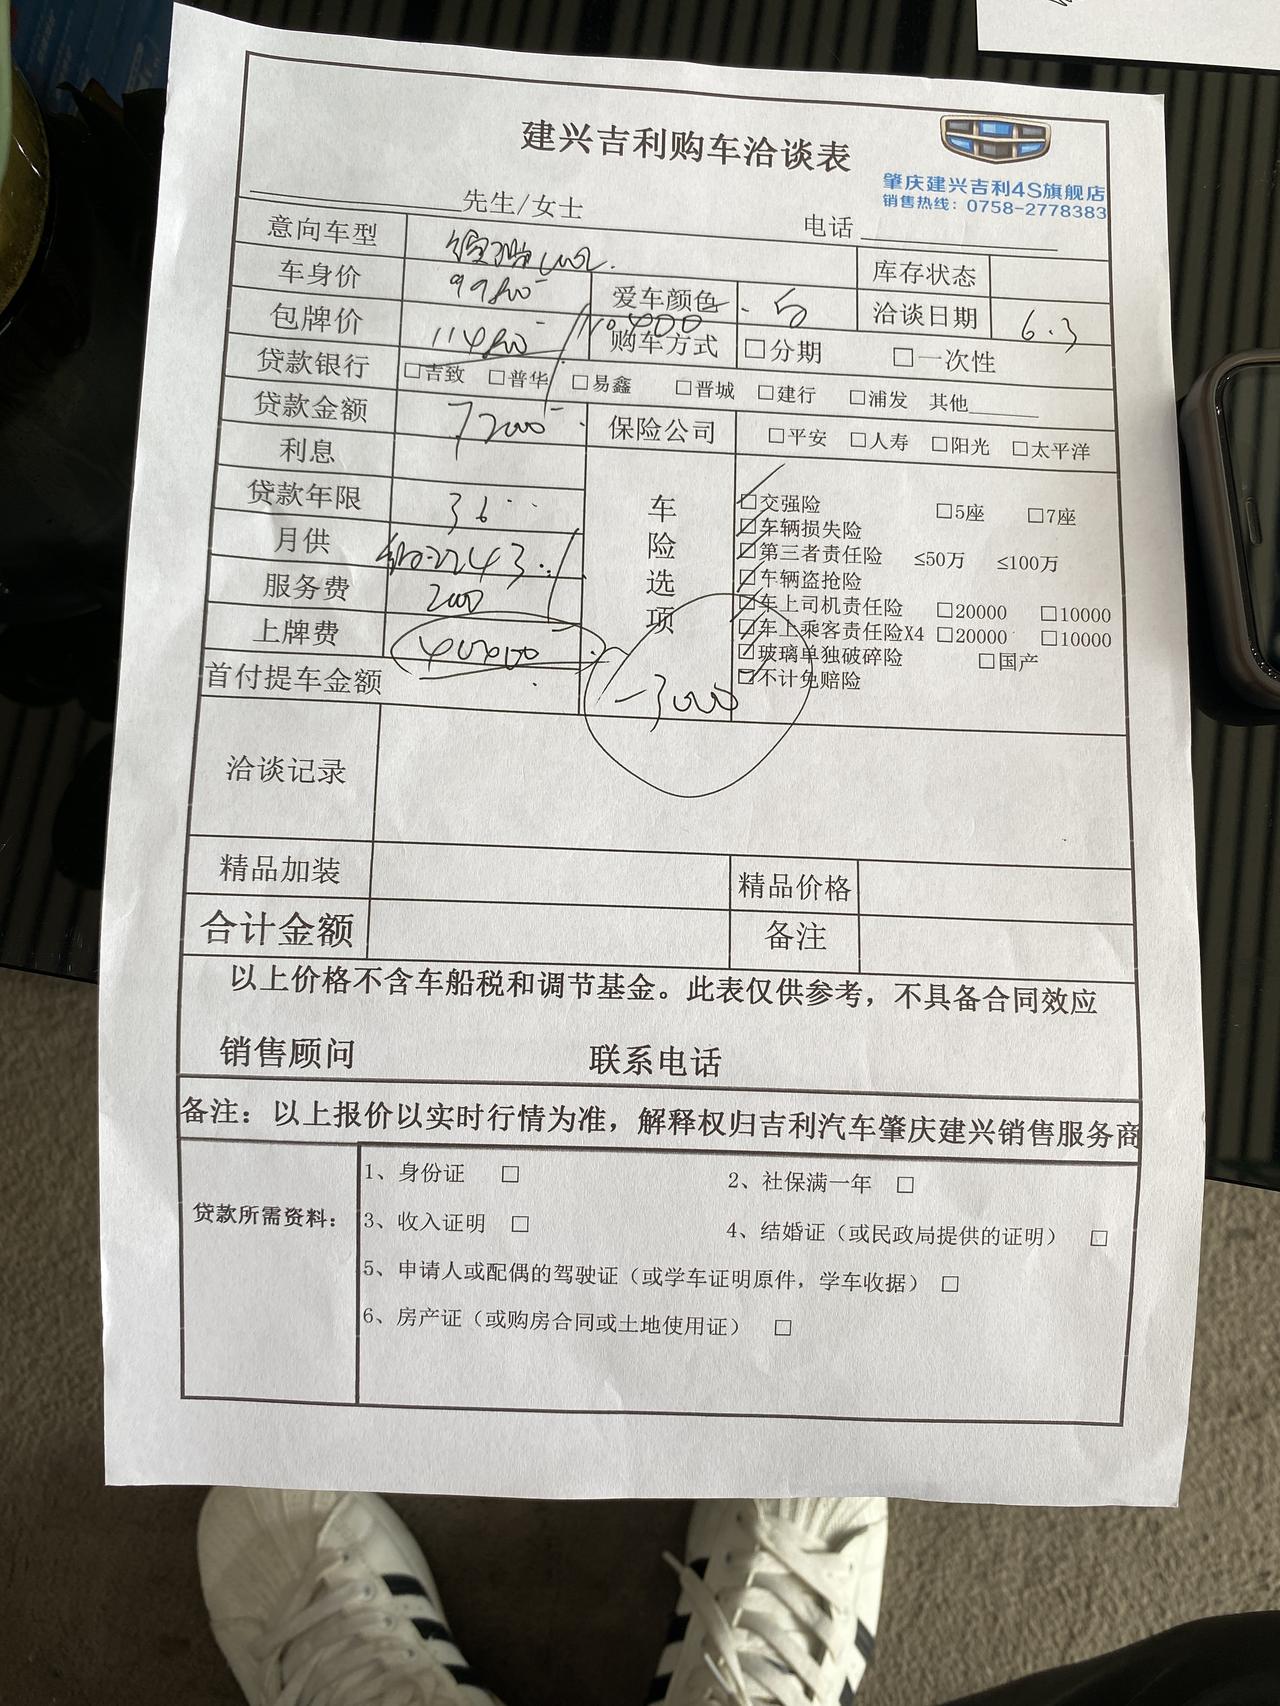 建兴吉利购车洽谈表
肇庆建兴吉利4S旗舰店
销售热线：0758-2778383
先生/女士 电话
意向车型 库存状态
车身价 爱车颜色 洽谈日期 6.3
包牌价 购车方式 □分期 □一次性
贷款银行 □吉致 □普华 □易鑫 □晋城 □建行 □浦发 其他
贷款金额 保险公司 □平安 □人寿 □阳光 □太平洋
利息
贷款年限 36
月供 2243
服务费
上牌费
首付提车金额
车险选项
□交强险 □5座 □7座
□车辆损失险
□第三者责任险 ≤50万 ≤100万
□车辆盗抢险
□车上司机责任险 □20000 □10000
□车上乘客责任险X4 □20000 □10000
□玻璃单独破碎险 □国产
□不计免赔险
-3000
洽谈记录
精品加装 精品价格
合计金额 备注
以上价格不含车船税和调节基金。此表仅供参考，不具备合同效应
销售顾问 联系电话
备注：以上报价以实时行情为准，解释权归吉利汽车肇庆建兴销售服务商
贷款所需资料：
1、身份证 □ 2、社保满一年 □
3、收入证明 □ 4、结婚证（或民政局提供的证明） □
5、申请人或配偶的驾驶证（或学车证明原件，学车收据） □
6、房产证（或购房合同或土地使用证） □